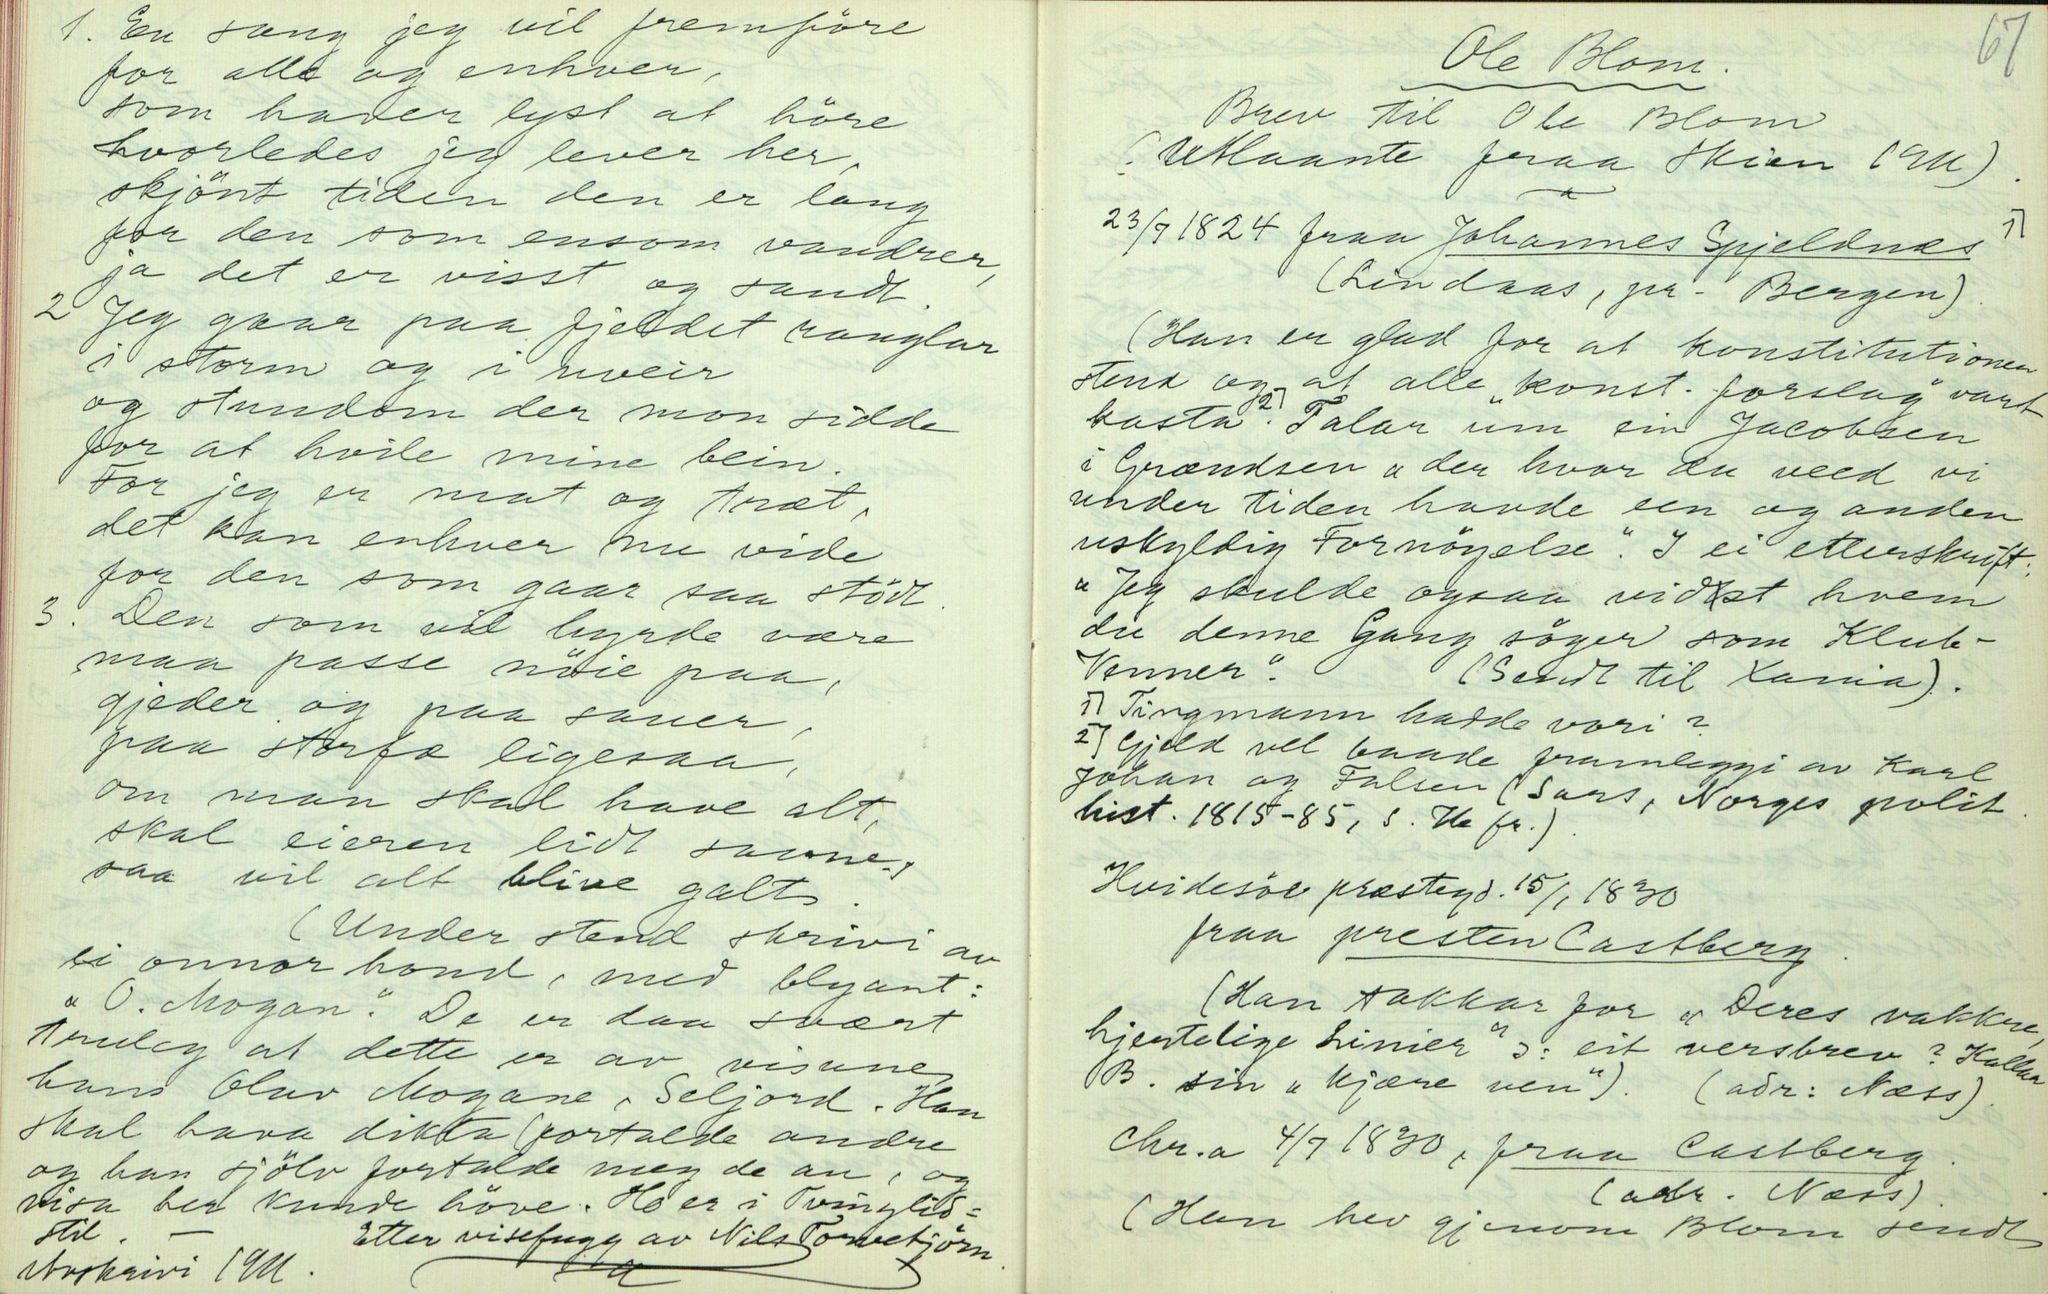 1. En sang jeg vil fremføre
for alle og enhver,
som haver lyst at höre
hvorledes jeg lever her,
skjönt tiden den er lang
for den som ensom vandrer,
ja det er visst og sandt.
2 Jeg gaar paa fjeldet ranglar
i storm og i uveir
og stundom der mon sidde
for at hvile mine bein.
For jeg er mat og træt,
det kan enhver nu vide
for den som gaar saa stödt.
3. Den som vil hyrde være
maa passe nöie paa,
gjeder og paa sauer,
paa storfæ ligesaa,
om man skal have alt,
skal eieren lidt savne,
saa vil alt blive galt.
(Under stend skrivi av
ei onnor hond, med blyant:
"O. Mogan". De er daa svært
truleg at dette er av visune
hans Olav Mogane, Seljord. Han
skal hava dikta (fortalde andre
og han sjölv fortalde meg de au, og
visa her kunde höve. Ho er i Tvinglid-
stil. —
Etter visefugg av Nils Torvetjörn.
Avskrivi 1911.
67
Ole Blom.
Brev til Ole Blom
(Utlaante fraa Skien 1911).
23/7 1824 fraa Johannes Spjeldnæs 1)
(Lindaas, pr. Bergen).
(Han er glad for at konstitutionen
stend og at alle "konst. forslag" vart
kasta 2). Talar um ein Jacobsen
i Grændsen "der hvor du veed vi
under tiden havde een og anden
uskyldig Fornöyelse". I ei etterskrift:
"Jeg skulde ogsaa vidst hvem
du denne Gang söger som Klub-
Venner". (Sendt til Xania).
1) Tingmann hadde vori?
2) Gjeld vel baade framleggi av Karl
Johan og Falsen (Sars, Norges polit.
hist. 1815-85, s. fr.).
Hvidesöe præstegd. 15/1 1830
fraa presten Castberg.
(Han takkar for "Deres vakkre,
hjertelige Linier" ɔ: eit versbrev? Kallar
B. sin "kjære ven"). (adr: Næss).
Chr.a 4/7 1830, fraa Castberg.
(adr. Næss)
(Han hev gjenom Blom sendt